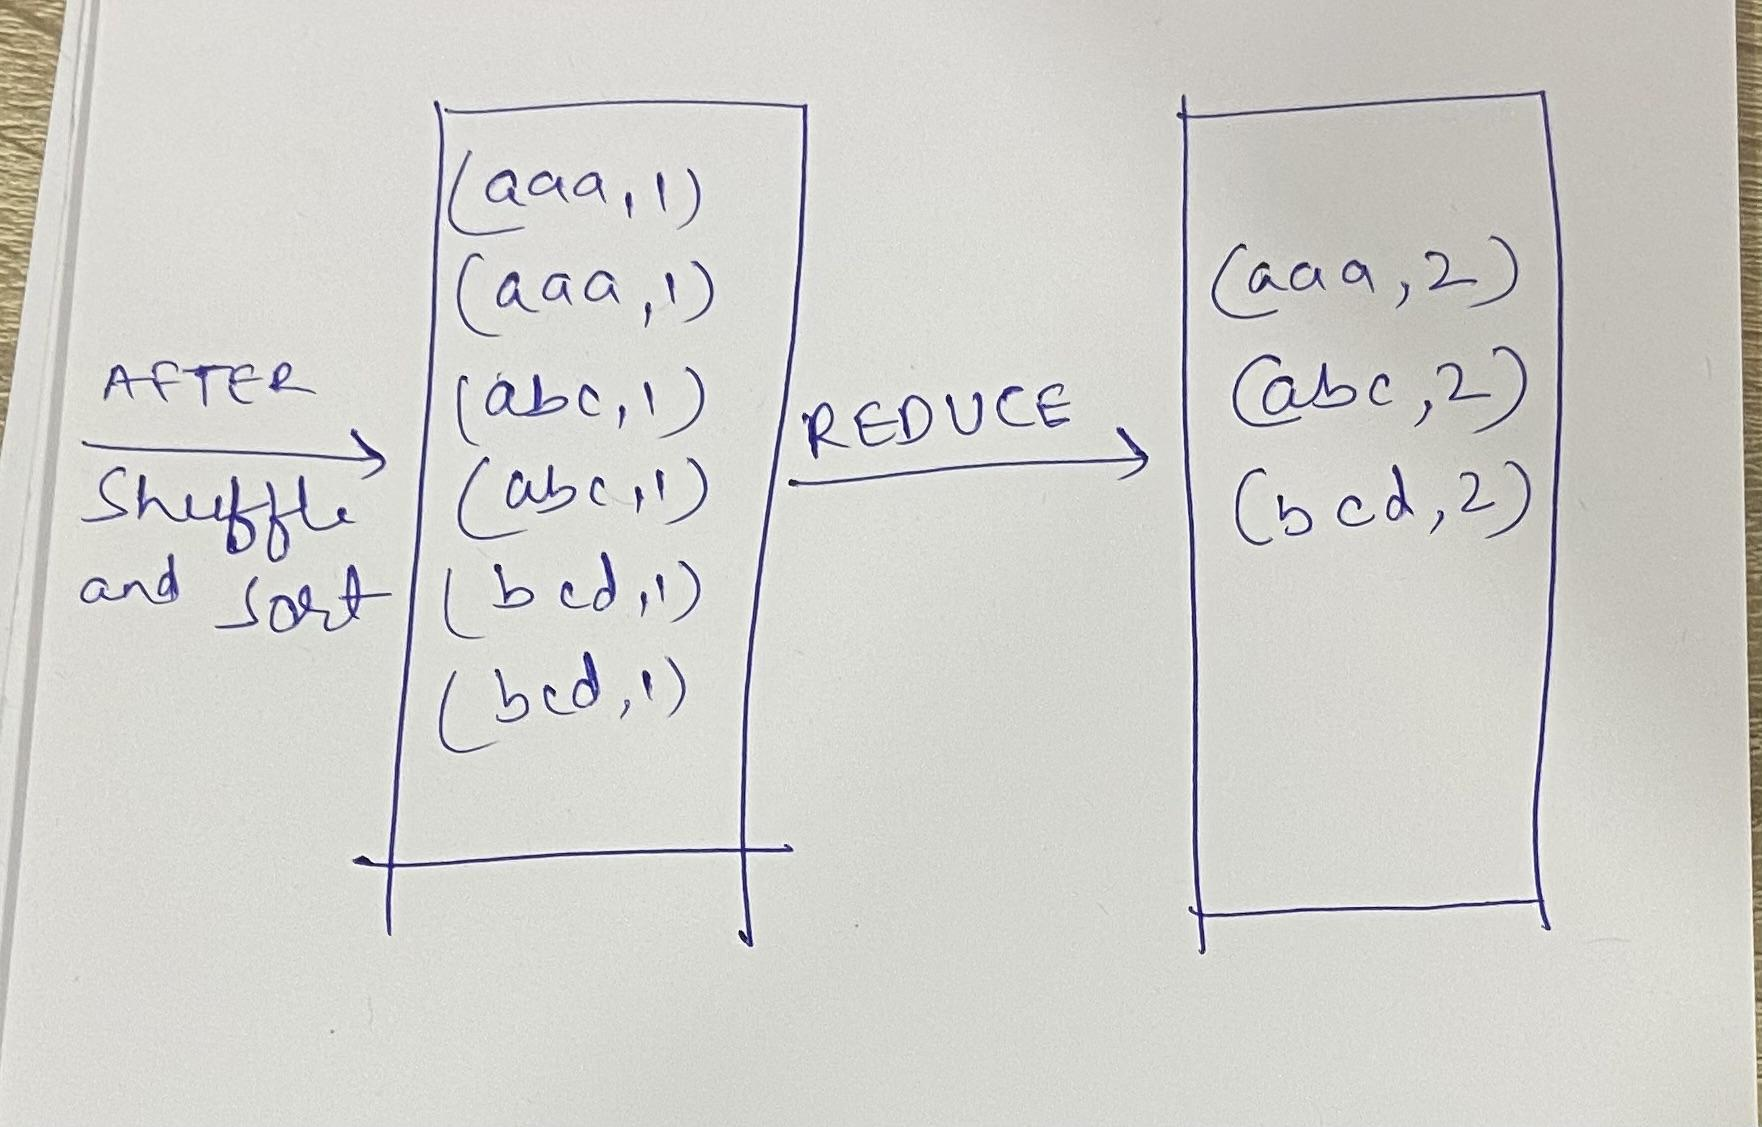 AFTER
Shuffle
and Sort
(aaa,1)
(aaa,1)
(abc,1)
(abc,1)
(bcd,1)
(bcd,1)
REDUCE
(aaa,2)
(abc,2)
(bcd,2)